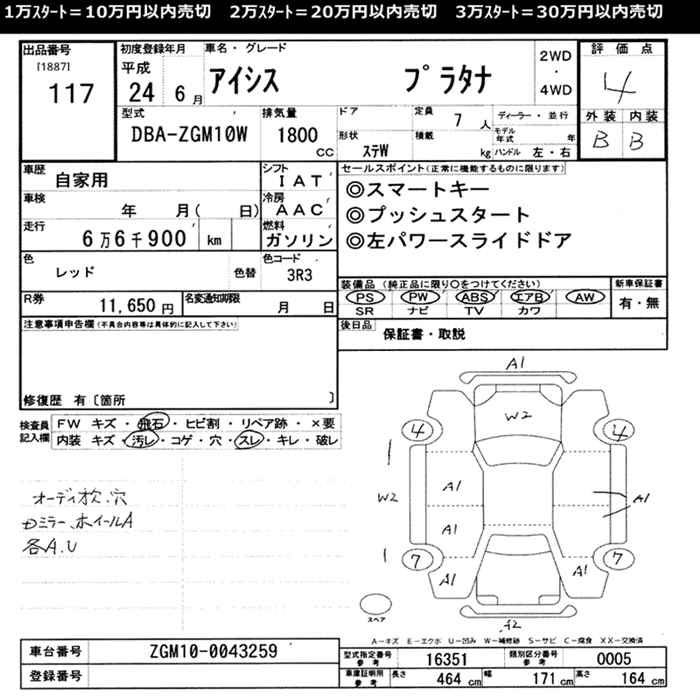 1万ｽﾀｰﾄ＝10万円以内売切　2万ｽﾀｰﾄ＝20万円以内売切　3万ｽﾀｰﾄ＝30万円以内売切
出品番号
[1887]
117
初度登録年月
平成
24 6月
車名・グレード
アイシス　プラタナ
2WD
・
4WD
評価点
4
外装 内装
B B
型式
DBA-ZGM10W
排気量
1800
CC
ドア
形状
ステW
定員
7 人
積載
kg
ディーラー・並行
モデル年式 年
ハンドル 左・右
車歴
自家用
シフト
IAT
車検
年 月( 日)
冷房
AAC
走行
6万6千900 km
燃料
ガソリン
セールスポイント(正常に機能するものに限ります)
◎スマートキー
◎プッシュスタート
◎左パワースライドドア
色
レッド
色替
色コード
3R3
装備品 (純正品に限り○をつけてください)
PS PW ABS エアB AW
SR ナビ TV カワ
新車保証書
有・無
R券
11,650 円
名変通知期限
月 日
後日品
保証書・取説
注意事項申告欄(不具合内容等は具体的に記入して下さい)
修復歴 有〔箇所 〕
検査員
記入欄
FW キズ・飛石・ヒビ割・リペア跡・×要
内装 キズ・汚レ・コゲ・穴・スレ・キレ・破レ
オーディオ枕、穴
ミラー、ホイールA
各A.U
A1
W2
4 4
W2
A1
A1
A1
7 7
A1 A1
A2
スペア
A－キズ E－エクボ U－凹み W－補修跡 S－サビ C－腐食 XX－交換済
車台番号
ZGM10-0043259
登録番号
型式指定番号
参考
16351
類別区分番号
参考
0005
車庫証明用
参考
長さ 464 cm 幅 171 cm 高さ 164 cm